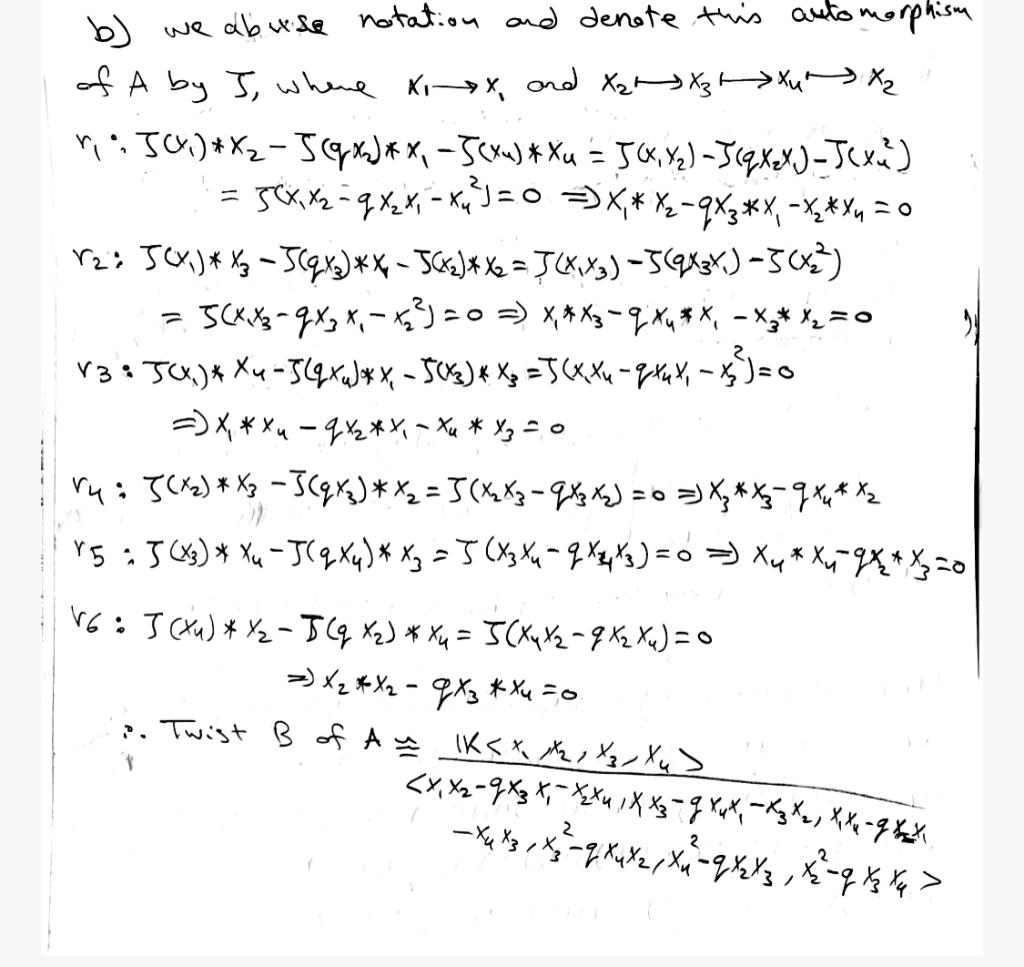 b) we abuse notation and denote this automorphism
of A by J, where x₁ ⟼ x₁ and x₂ ⟼ x₃ ⟼ x₄ ⟼ x₂
r₁: J(x₁)*x₂ - J(qx₂)*x₁ - J(x₄)*x₄ = J(x₁x₂) - J(qx₂x₁) - J(x₄²)
= J(x₁x₂ - qx₂x₁ - x₄²) = 0 ⇒ x₁*x₂ - qx₃*x₁ - x₂*x₄ = 0
r₂: J(x₁)*x₃ - J(qx₃)*x₁ - J(x₂)*x₂ = J(x₁x₃) - J(qx₃x₁) - J(x₂²)
= J(x₁x₃ - qx₃x₁ - x₂²) = 0 ⇒ x₁*x₃ - qx₄*x₁ - x₃*x₂ = 0
r3: J(x₁)*x₄ - J(qx₄)*x₁ - J(x₃)*x₃ = J(x₁x₄ - qx₄x₁ - x₃²) = 0
⇒ x₁*x₄ - qx₂*x₁ - x₄*x₃ = 0
r₄: J(x₂)*x₃ - J(qx₃)*x₂ = J(x₂x₃ - qx₃x₂) = 0 ⇒ x₃*x₃ - qx₄*x₂
r5: J(x₃)*x₄ - J(qx₄)*x₃ = J(x₃x₄ - qx₄x₃) = 0 ⇒ x₄*x₄ - qx₂*x₃ = 0
r6: J(x₄)*x₂ - J(qx₂)*x₄ = J(x₄x₂ - qx₂x₄) = 0
⇒ x₂*x₂ - qx₃*x₄ = 0
∴ Twist B of A ≅ IK<x₁, x₂, x₃, x₄>
<x₁x₂ - qx₃x₁ - x₂x₄, x₁x₃ - qx₄x₁ - x₃x₂, x₁x₄ - qx₂x₁
- x₄x₃, x₃² - qx₄x₂, x₄² - qx₂x₃, x₂² - qx₃x₄>